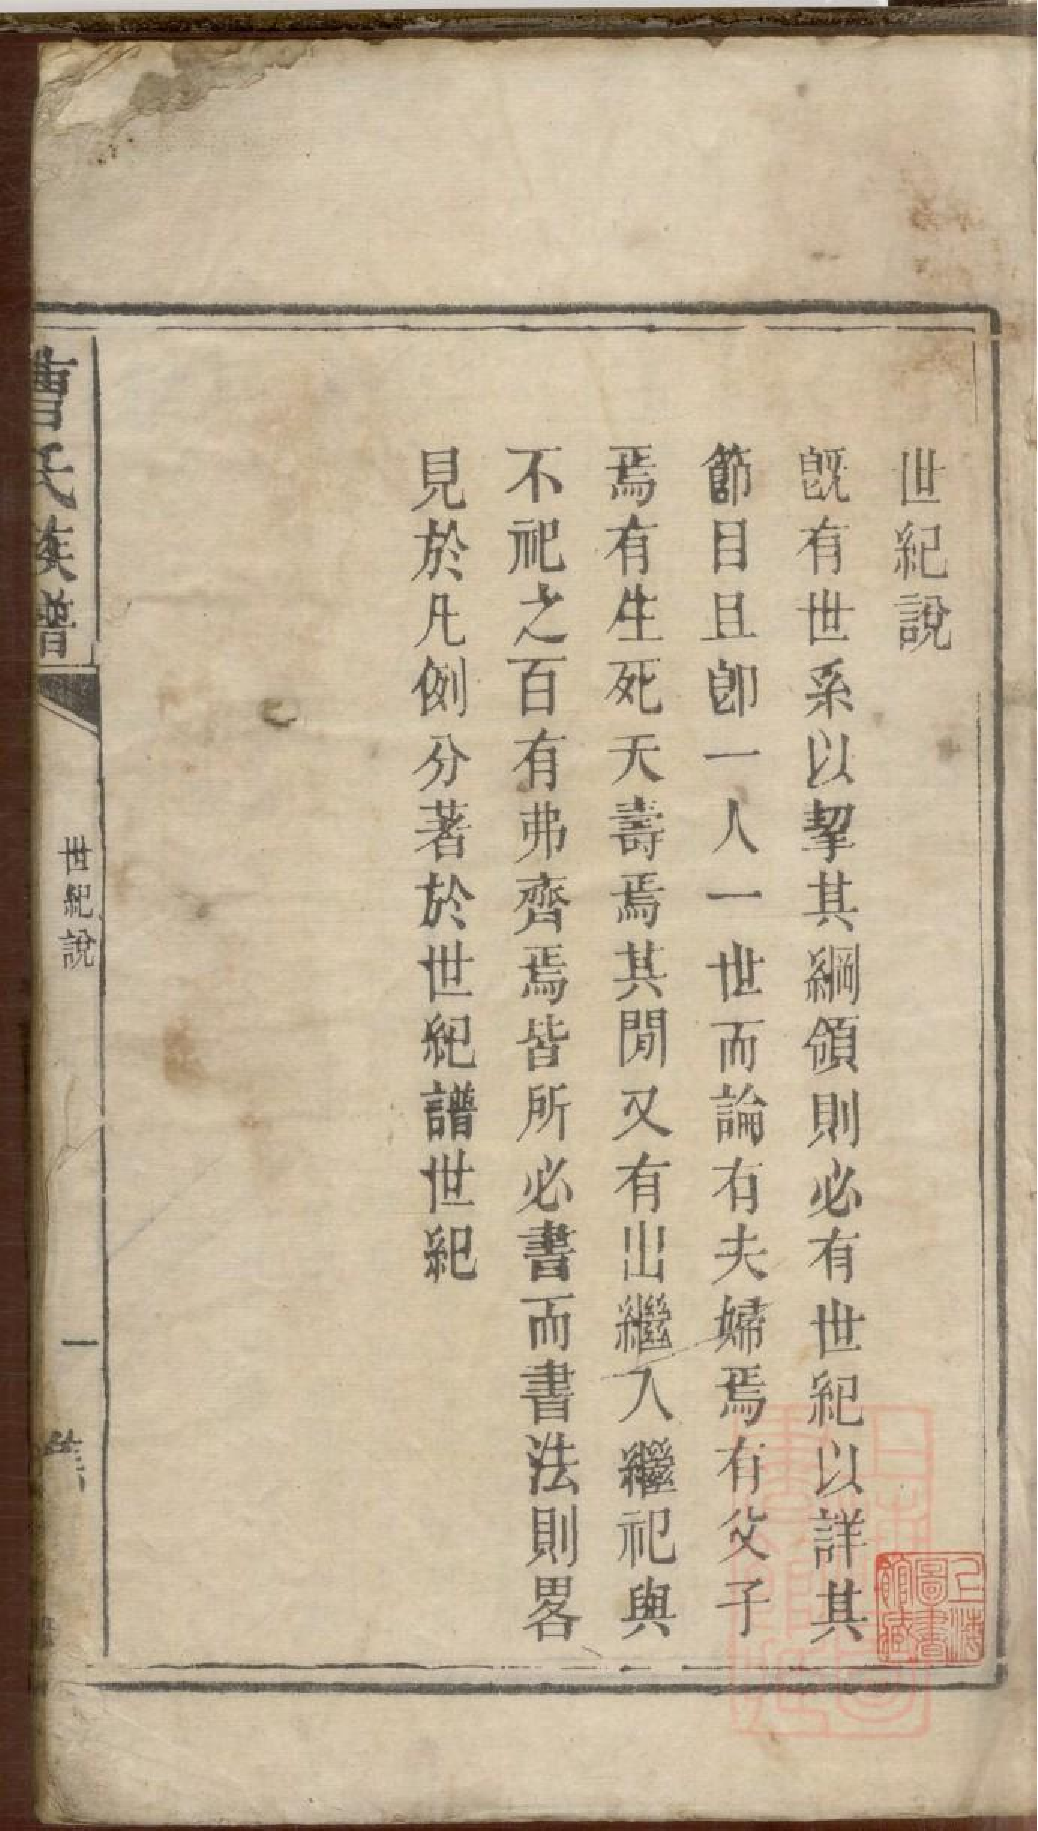 世紀說
旣有世系以挈其綱領則必有世紀以詳其
節目且卽一人一世而論有夫婦焉有父子
焉有生死天壽焉其閒又有出繼入繼祀與
不祀之百有弗齊焉皆所必書而書法則畧
見於凡例分著於世紀譜世紀
曹氏族譜
世紀說
一
上海
圖書
館藏